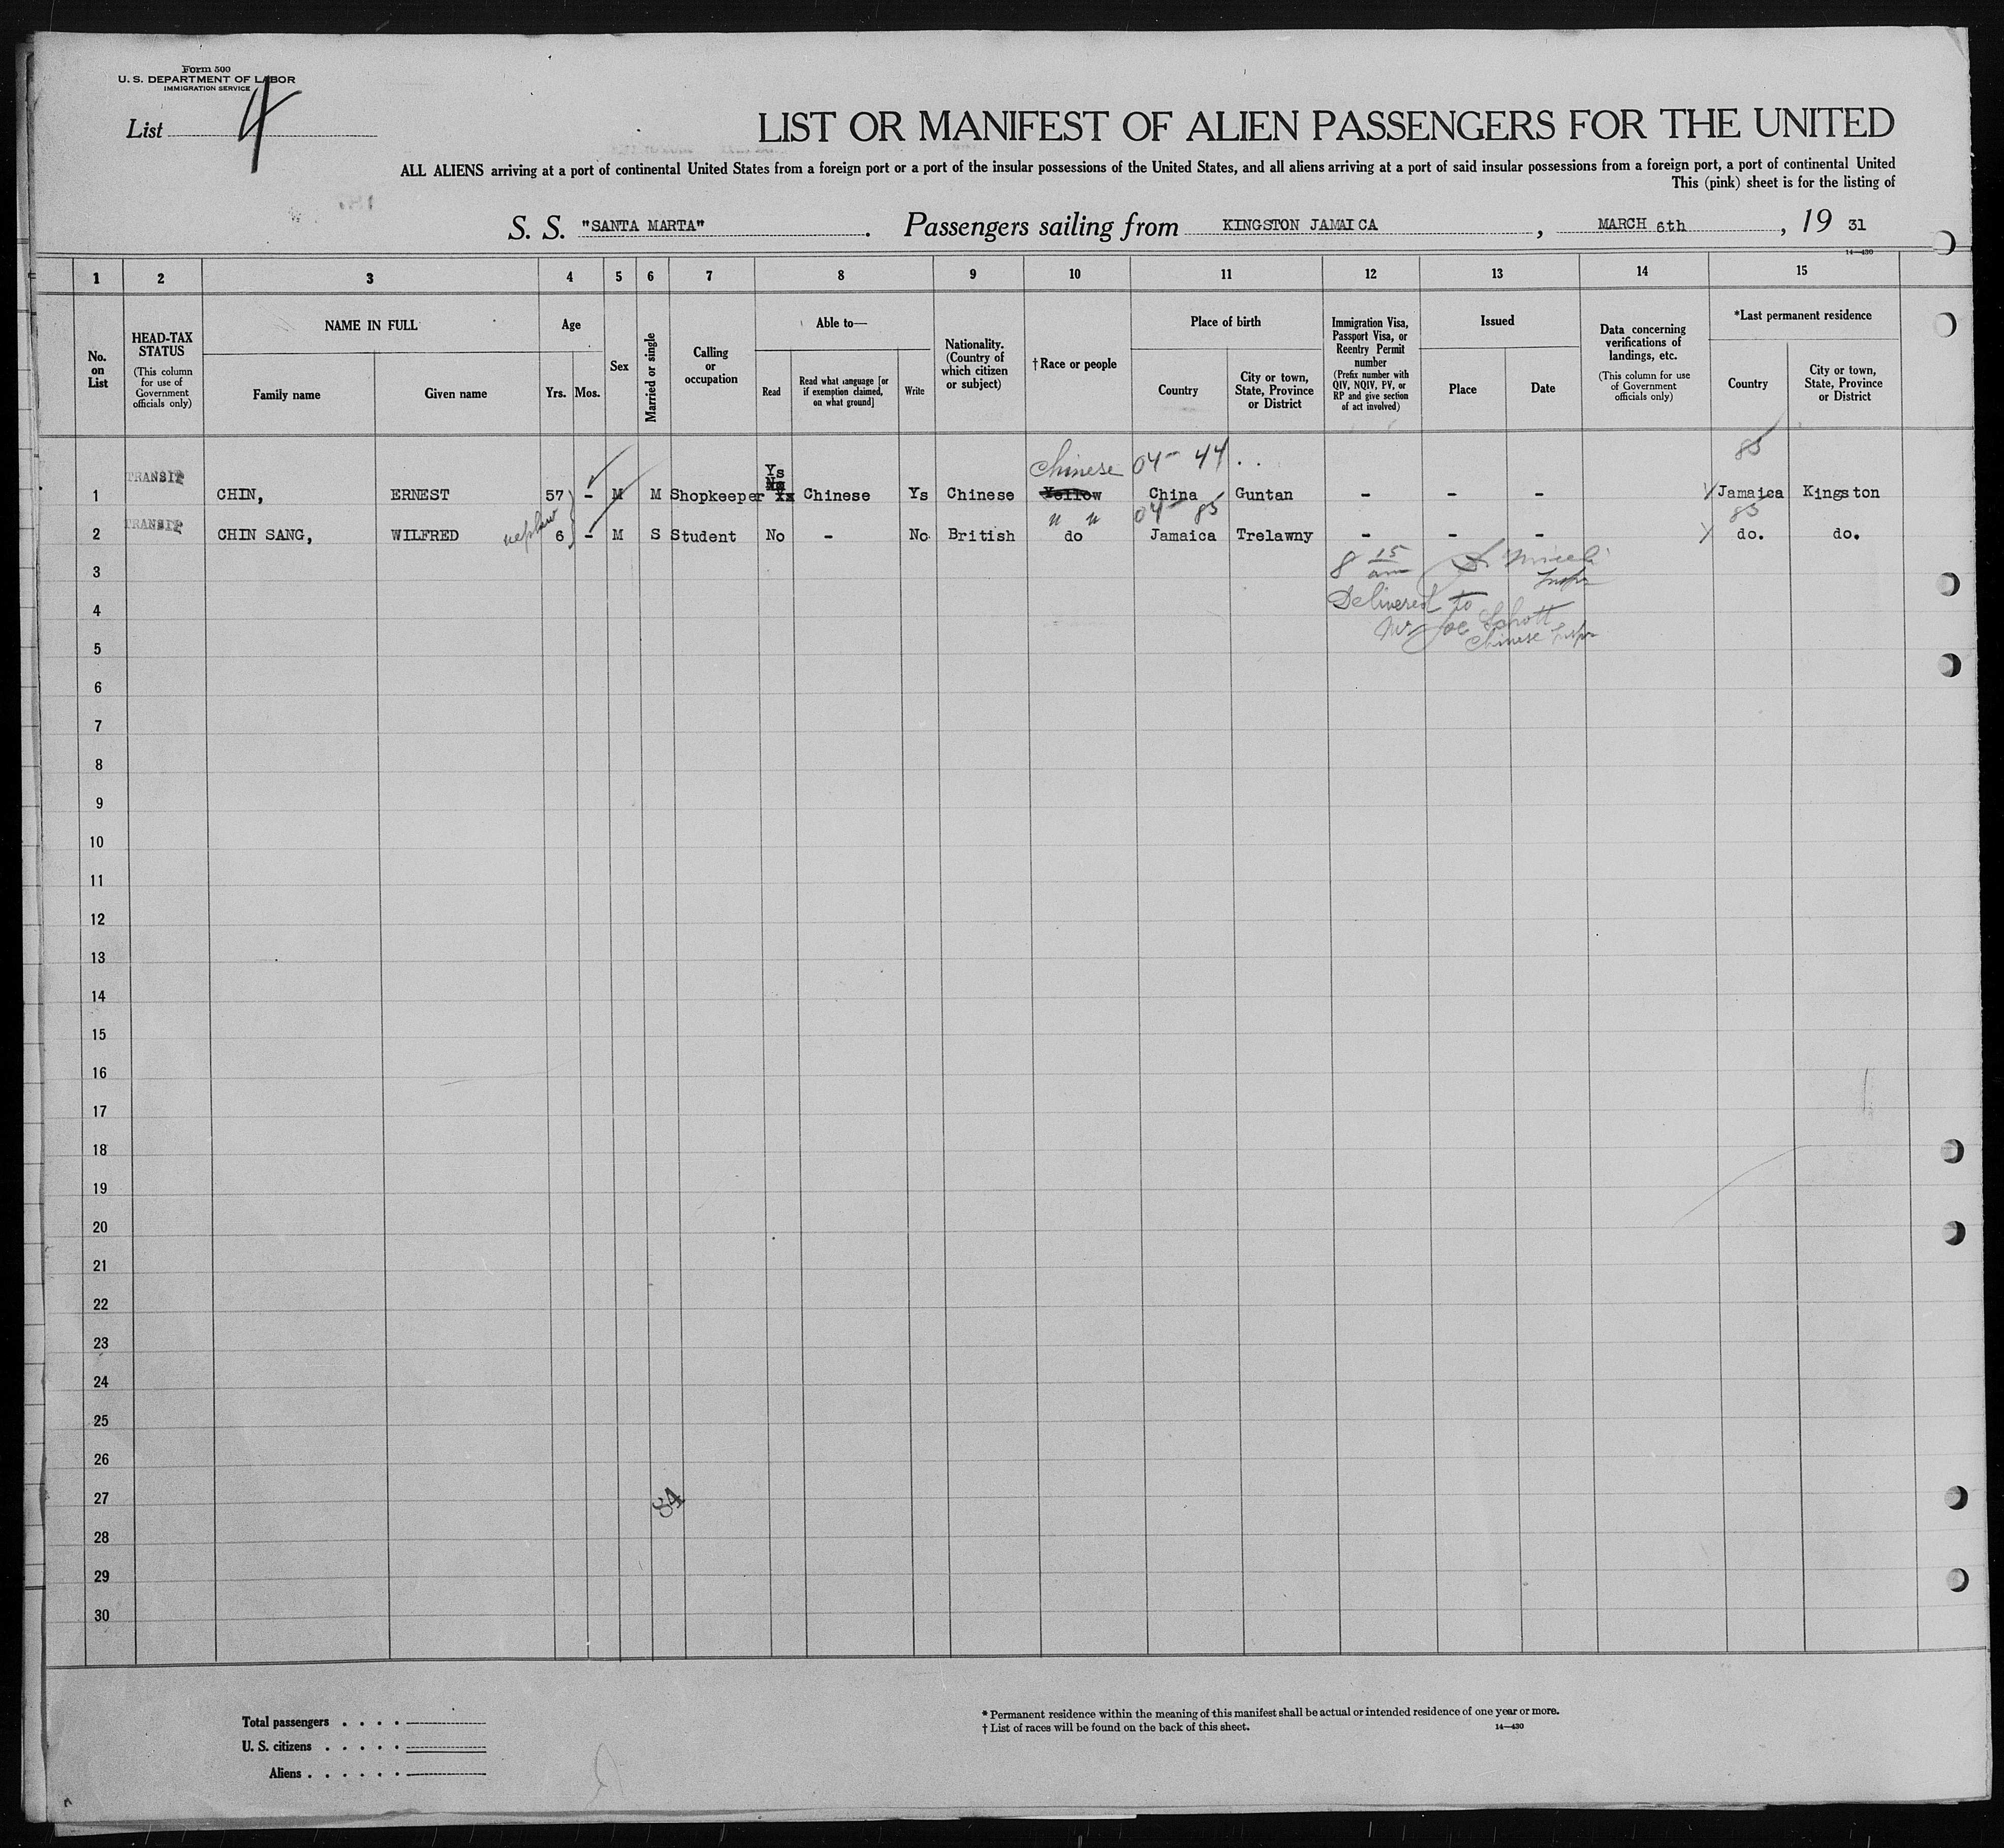 Form 500
U. S. DEPARTMENT OF LABOR
IMMIGRATION SERVICE
List 4
LIST OR MANIFEST OF ALIEN PASSENGERS FOR THE UNITED
ALL ALIENS arriving at a port of continental United States from a foreign port or a port of the insular possessions of the United States, and all aliens arriving at a port of said insular possessions from a foreign port, a port of continental United
This (pink) sheet is for the listing of
S. S. "SANTA MARTA". Passengers sailing from KINGSTON JAMAICA, MARCH 6th, 19 31
14—430
1 2 3 4 5 6 7 8 9 10 11 12 13 14 15
No. on List
HEAD-TAX STATUS
(This column for use of Government officials only)
NAME IN FULL
Family name Given name
Age
Yrs. Mos.
Sex
Married or single
Calling or occupation
Able to—
Read
Read what language [or if exemption claimed, on what ground]
Write
Nationality. (Country of which citizen or subject)
†Race or people
Place of birth
Country
City or town, State, Province or District
Immigration Visa, Passport Visa, or Reentry Permit number
(Prefix number with QIV, NQIV, PV, or RP and give section of act involved)
Issued
Place Date
Data concerning verifications of landings, etc.
(This column for use of Government officials only)
*Last permanent residence
Country
City or town, State, Province or District
Chinese 04- 44 85
TRANSIT Ys
1 CHIN, ERNEST 57 - M M Shopkeeper Chinese Ys Chinese Yellow China Guntan - - - Jamaica Kingston
" " 04- 85 85
TRANSIT
2 CHIN SANG, WILFRED nephew 6 - M S Student No - No British do Jamaica Trelawny - - - do. do.
3 8 15 am Inspr
4 Delivered to
Mr Joe Schott
5 Chinese Inspr
6
7
8
9
10
11
12
13
14
15
16
17
18
19
20
21
22
23
24
25
26
27 84
28
29
30
Total passengers . . . .
U. S. citizens . . . . .
Aliens . . . . . .
* Permanent residence within the meaning of this manifest shall be actual or intended residence of one year or more.
† List of races will be found on the back of this sheet. 14—430